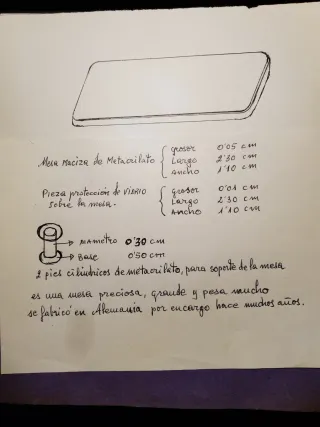 Mesa maciza de Metacrilato { grosor 0'05 cm
Largo 2'30 cm
Ancho 1'10 cm
Pieza protección de VIDRIO sobre la mesa. { grosor 0'01 cm
Largo 2'30 cm
Ancho 1'10 cm
DIAMETRO 0'30 cm
BASE 0'50 cm
2 pies cilíndricos de metacrilato, para soporte de la mesa
es una mesa preciosa, grande y pesa mucho
se fabricó en Alemania por encargo hace muchos años.